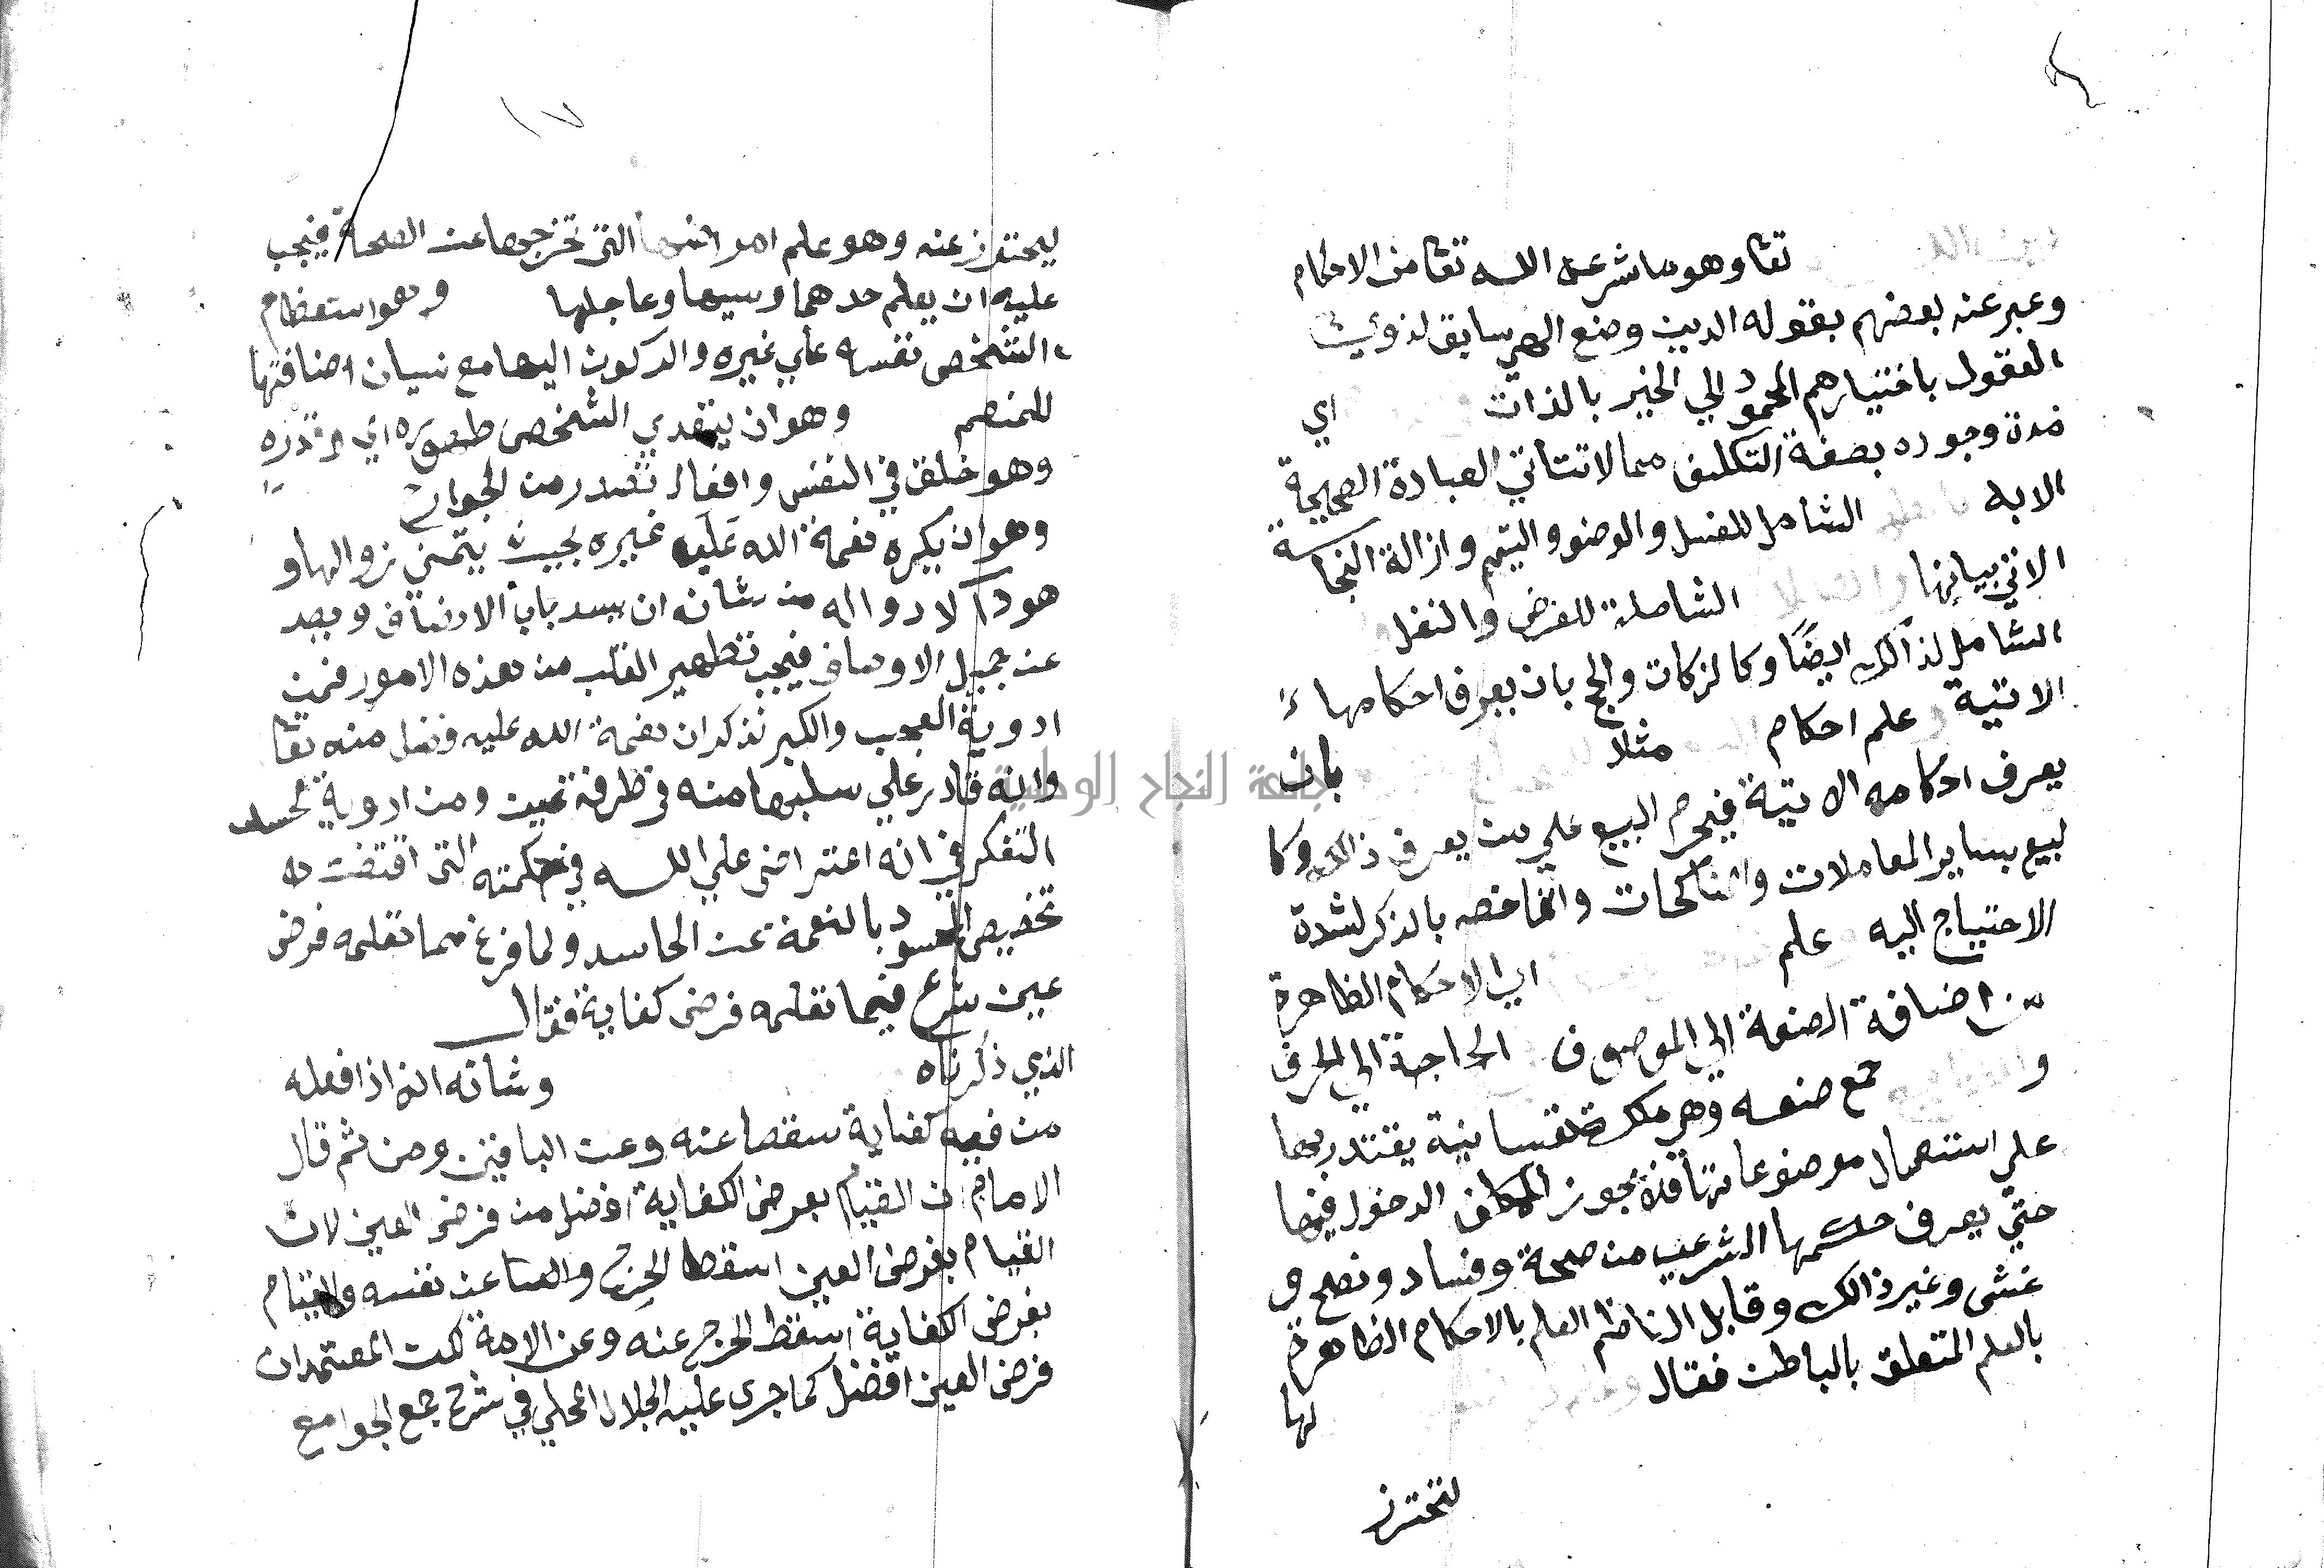 تعا وهو ما شرعه الله تعا من الاحكام
وعبر عنه بعضهم بقوله الدين وضع الهي سايق لذوي
العقول باختيارهم المحمود الي الخير بالذات اي
مدة وجوده بصفة التكليف مما لا تتاتي العبادة الصحيحة
الا به الشامل للغسل والوضو والتيمم وازالة النجاسة
الاتي بيانها الشاملة للفرض والنفل
الشامل لذالك ايضًا وكالزكات والحج بان يعرف احكامها
الاتية علم احكام مثلا بان
يعرف احكامه الاتية فيحرم البيع علي من يعرف ذالك وكا
لبيع ساير المعاملات والمناكحات وانما خصه بالذكر لشدة
الاحتياج اليه علم اي الاحكام الظاهرة
من اضافة الصفة الي الموصوف الحاجة الي الحرف
و جمع صنعه وهي ملكة نفسانية يقتدر بها
علي استعمال موضوعاتها فلا يجوز للمكلف الدخول فيها
حتي يعرف حكمها الشرعي من صحة وفساد ونصح و
غش وغير ذالك وقابل الناظم العلم بالاحكام الظاهرة
بالعلم المتعلق بالباطن فقال
لها
لتحترز
١٧
ليحترز عنه وهو علم امراضها التي تخرجها عن الصحة فيجب
عليه ان يعلم حدهما وسببها وعاجلها وهو استعظام
الشخص نفسه علي غيره والركون اليها مع نسيان اضافتها
للمنعم وهو ان يتعدي الشخص طوره اي قدره
وهو خلق في النفس وافعال تصدر من الجوارح
وهو ان يكره نعمة الله علي غيره بحيث يتمني زوالها و
هو دآ لا دوا له من شانه ان يسد باب الانصاف ويصد
عن جميل الاوصاف فيجب تطهير القلب من هذه الامور فمن
ادوية العجب والكبر تذكر ان نعمة الله عليه فضل منه تعا
وانه قادر علي سلبها منه في طرفة عين ومن ادوية الحسد
التفكر في انه اعتراض علي الله في حكمته التي اقتضت
تخصيص المحسود بالنعمة عن الحاسد ولما فرغ مما تعلمه فرض
عين شرع فيما تعلمه فرض كفاية فقال
الذي ذكرناه وشانه انه اذا فعله
من فيه كفاية سقط عنه وعن الباقين ومن ثم قال
الامام ان القيام بفرض الكفاية افضل من فرض العين لان
القيام بفرض العين اسقط الحرج والعنا عن نفسه والقيام
بفرض الكفاية اسقط الحرج عنه وعن الامة لكن المعتمد ان
فرض العين افضل كما جرى عليه الجلال المحلي في شرح جمع الجوامع
جامعة النجاح الوطنية